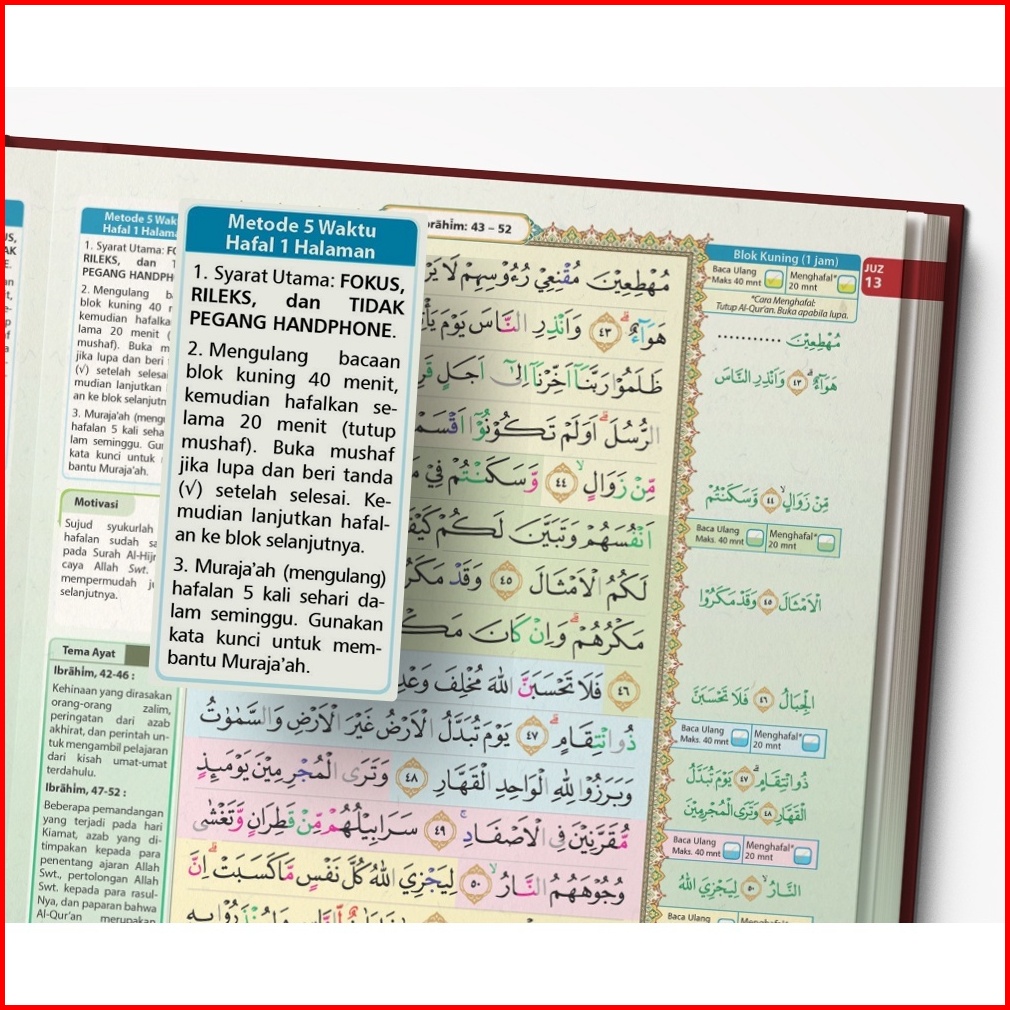 Metode 5 Waktu
Hafal 1 Halaman
1. Syarat Utama: FOKUS,
RILEKS, dan TIDAK
PEGANG HANDPHONE.
2. Mengulang bacaan
blok kuning 40 menit,
kemudian hafalkan se-
lama 20 menit (tutup
mushaf). Buka mushaf
jika lupa dan beri tanda
(√) setelah selesai. Ke-
mudian lanjutkan hafal-
an ke blok selanjutnya.
3. Muraja'ah (mengulang)
hafalan 5 kali sehari da-
lam seminggu. Gunakan
kata kunci untuk mem-
bantu Muraja'ah.
Metode 5 Wak
Hafal 1 Halama
1. Syarat Utama: FO
RILEKS, dan T
PEGANG HANDPH
2. Mengulang b
blok kuning 40 m
kemudian hafalka
lama 20 menit (
mushaf). Buka m
jika lupa dan beri
(√) setelah selesa
mudian lanjutkan
an ke blok selanjutn
3. Muraja'ah (meng
hafalan 5 kali seha
lam seminggu. Gu
kata kunci untuk
bantu Muraja'ah.
Motivasi
Sujud syukurlah
hafalan sudah sa
pada Surah Al-Hijr
caya Allah Swt.
mempermudah
selanjutnya.
Tema Ayat
Ibrāhīm, 42-46 :
Kehinaan yang dirasakan
orang-orang zalim,
peringatan dari azab
akhirat, dan perintah un-
tuk mengambil pelajaran
dari kisah umat-umat
terdahulu.
Ibrāhīm, 47-52 :
Beberapa pemandangan
yang terjadi pada hari
Kiamat, azab yang di-
timpakan kepada para
penentang ajaran Allah
Swt., pertolongan Allah
Swt. kepada para rasul-
Nya, dan paparan bahwa
Al-Qur'an merupakan
brāhīm: 43 – 52
مُهْطِعِيْنَ مُقْنِعِيْ رُءُوْسِهِمْ لَا
هَوَاۤءٌ ۗ ٤٣ وَاَنْذِرِ النَّاسَ يَوْمَ
ظَلَمُوْا رَبَّنَآ اَخِّرْنَآ اِلٰٓى اَجَلٍ
الرُّسُلَ ۗ اَوَلَمْ تَكُوْنُوْٓا
مِّنْ زَوَالٍۙ ٤٤ وَّسَكَنْتُمْ فِيْ
اَنْفُسَهُمْ وَتَبَيَّنَ لَكُمْ كَيْفَ
لَكُمُ الْاَمْثَالَ ٤٥ وَقَدْ مَكَرُ
مَكْرُهُمْ ۗ وَاِنْ كَانَ
٤٦ فَلَا تَحْسَبَنَّ اللّٰهَ مُخْلِفَ
ذُو انْتِقَامٍۗ ٤٧ يَوْمَ تُبَدَّلُ الْاَرْضُ غَيْرَ الْاَرْضِ وَالسَّمٰوٰتُ
وَبَرَزُوْا لِلّٰهِ الْوَاحِدِ الْقَهَّارِ ٤٨ وَتَرَى الْمُجْرِمِيْنَ يَوْمَىِٕذٍ
مُّقَرَّنِيْنَ فِى الْاَصْفَادِۚ ٤٩ سَرَابِيْلُهُمْ مِّنْ قَطِرَانٍ وَّتَغْشٰى
وُجُوْهَهُمُ النَّارُۙ ٥٠ لِيَجْزِيَ اللّٰهُ كُلَّ نَفْسٍ مَّا كَسَبَتْ ۗ اِنَّ
Blok Kuning (1 jam)
Baca Ulang
Maks 40 mnt
Menghafal*
20 mnt
*Cara Menghafal:
Tutup Al-Qur'an. Buka apabila lupa.
JUZ
13
مُهْطِعِيْنَ ...........
هَوَاۤءٌ ۗ ٤٣ وَاَنْذِرِ النَّاسَ
مِّنْ زَوَالٍۙ ٤٤ وَّسَكَنْتُمْ
Baca Ulang
Maks. 40 mnt
Menghafal*
20 mnt
الْاَمْثَالَ ٤٥ وَقَدْ مَكَرُوْا
الْجِبَالُ ٤٦ فَلَا تَحْسَبَنَّ
Baca Ulang
Maks. 40 mnt
Menghafal*
20 mnt
ذُو انْتِقَامٍۗ ٤٧ يَوْمَ تُبَدَّلُ
الْقَهَّارِ ٤٨ وَتَرَى الْمُجْرِمِيْنَ
Baca Ulang
Maks. 40 mnt
Menghafal*
20 mnt
النَّارُۙ ٥٠ لِيَجْزِيَ اللّٰهُ
Baca Ulang
Menghafal*